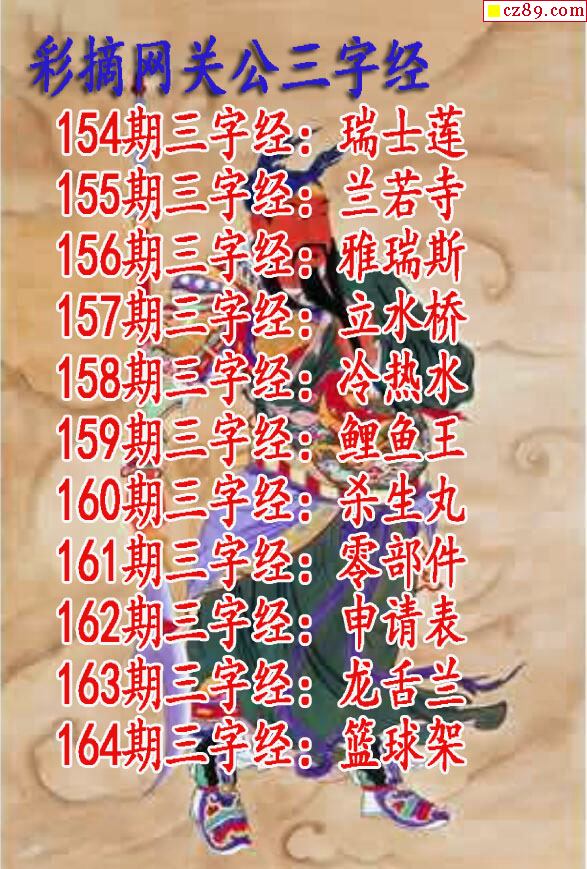 cz89.com
彩摘网关公三字经
154期三字经：瑞士莲
155期三字经：兰若寺
156期三字经：雅瑞斯
157期三字经：立水桥
158期三字经：冷热水
159期三字经：鲤鱼王
160期三字经：杀生丸
161期三字经：零部件
162期三字经：申请表
163期三字经：龙舌兰
164期三字经：篮球架